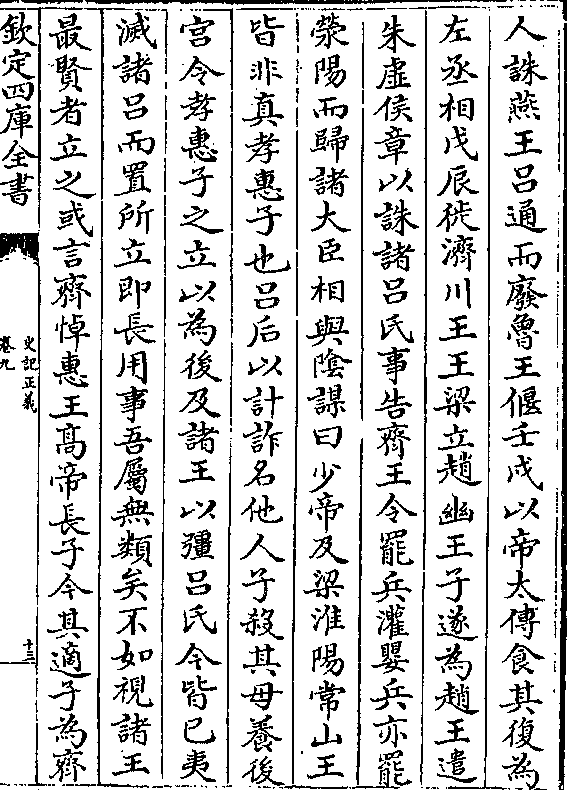 人誅燕王呂通而廢魯王偃壬戌以帝太傅食其復為
左丞相戊辰徙濟川王王梁立趙幽王子遂為趙王遣
朱虛侯章以誅諸呂氏事告齊王令罷兵灌嬰兵亦罷
滎陽而歸諸大臣相與陰謀曰少帝及梁淮陽常山王
皆非真孝惠子也呂后以計詐名他人子殺其母養後
宮令孝惠子之立以為後及諸王以彊呂氏今皆已夷
滅諸呂而置所立即長用事吾屬無類矣不如視諸王
最賢者立之或言齊悼惠王高帝長子今其適子為齊
欽定四庫全書
史記正義
卷九
十三